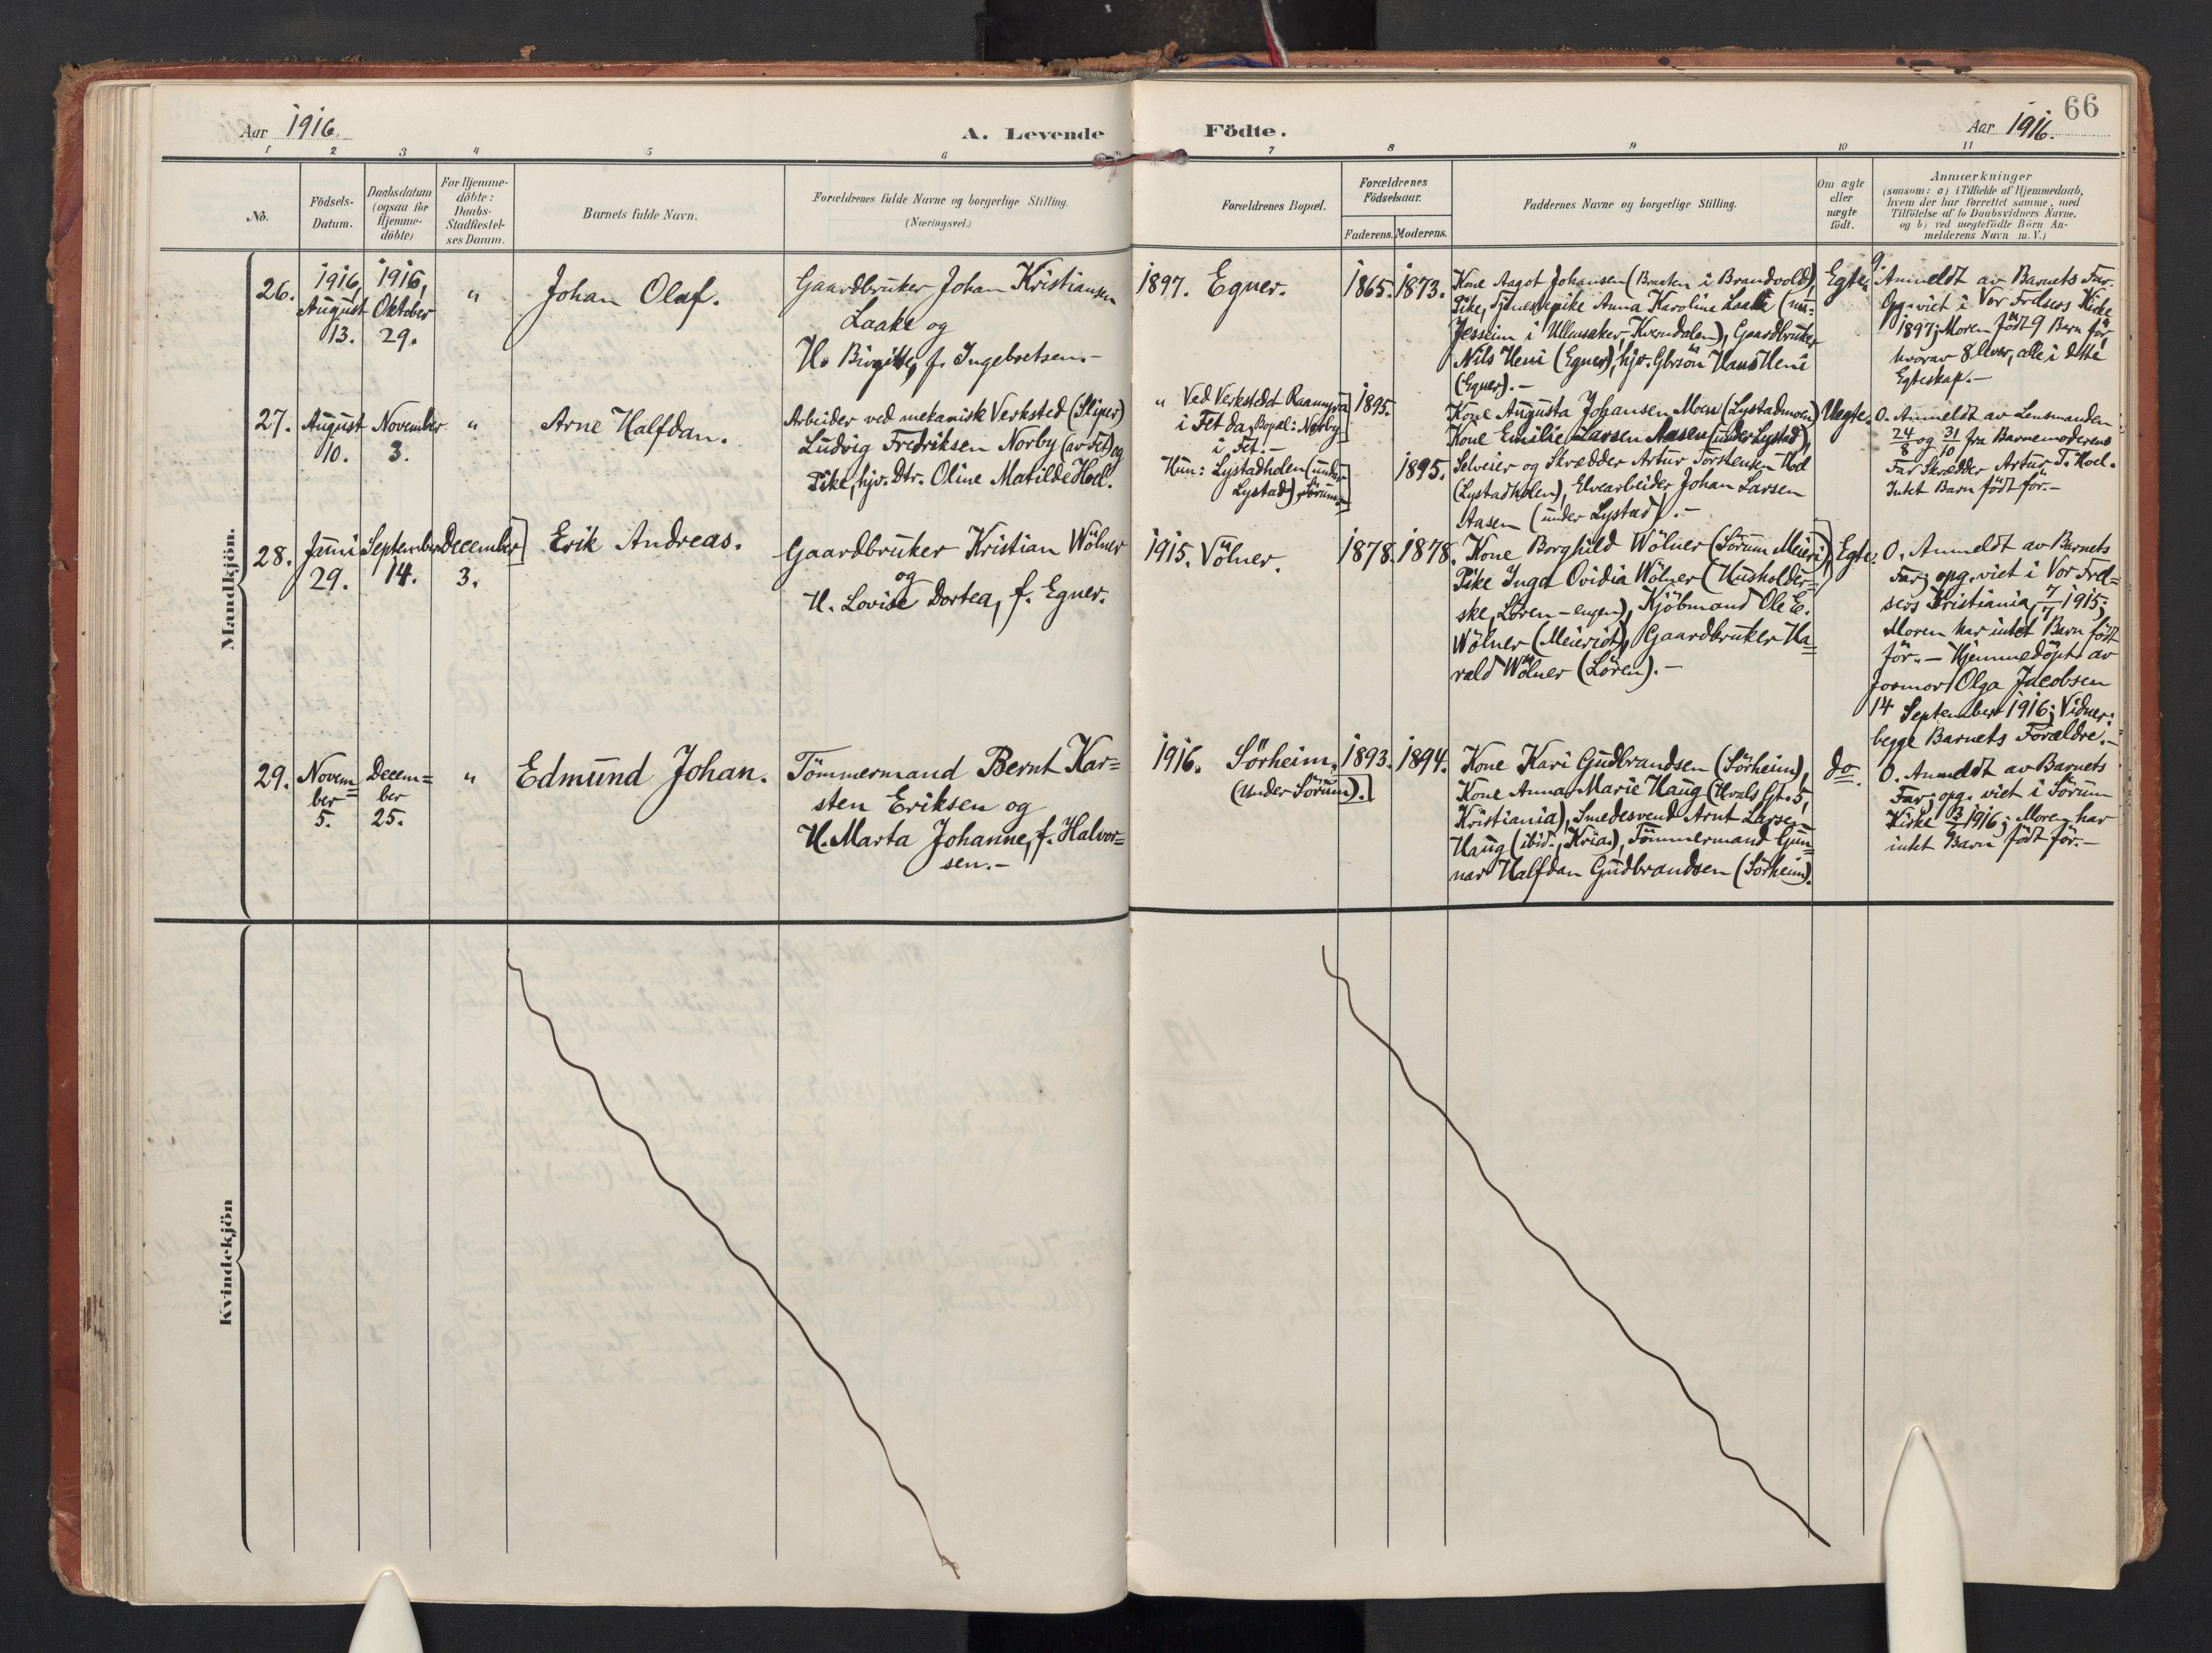 66
Aar 1916.
A. Levende Födte.
Aar 1916.
1 2 3 4 5 6 7 8 9 10 11
No.
Födsels-
Datum.
Daabsdatum
(ogsaa for
Hjemme-
döbte)
For Hjemme-
döbte:
Daabs-
Stadfæstel-
ses Datum.
Barnets fulde Navn.
Forældrenes fulde Navne og borgerlige Stilling.
(Næringsvei.)
Forældrenes Bopæl.
Forældrenes
Födselsaar.
Faderens. Moderens.
Faddernes Navne og borgerlige Stilling.
Om ægte
eller
uægte
födt.
Anmærkninger
(saasom: a) i Tilfælde af Hjemmedaab,
hvem der har forrettet samme, med
Tilföielse af to Daabsvidners Navne.
og b) ved uægtefödte Börn An-
melderens Navn m. V.)
Mandkjön.
26.
1916,
August
13.
1916,
Oktober
29.
"
Johan Olaf.
Gaardbruker Johan Kristiansen
Laake og
H. Birgitte, f. Ingebretsen.-
1897. Egner.
1865.
1873.
Kone Aagot Johansen (Braaten i Brandvold),
Pike, Tjenestepike Anna Karoline Laake
Jesseim i Ullensaker, Kverndalen), Gaardbruker
Nils Heni (Egner), hjv. Gbrsön Hans Heni
(Egner).-
Egte.
9. Anmeldt av Barnets Far.
Opg. viet i Vor Frelsers Kirke
1897; Moren födt 9 Barn för,
hvorav 8 lever, alle i dette
Egteskap.-
27.
August
10.
November
3.
"
Arne Halfdan.
Arbeider ved mekanisk Verksted (Sliper)
Ludvig Fredriksen Norby (av Fet) og
Pike, hjv. Dtr. Oline Matilde Hoel.
" Ved Verkstedet
i Fet da, Bopæl: Norby
i Fet.-
Hun: Lystadholen (under
Lystad), Sörum.
1895.
1895.
Kone Augusta Johansen Moen (Lystadmoen)
Kone Emilie Larsen Aasen (under Lystad),
Selveier og Skrædder Artur Torstensen Hoel
(Lystadholen), Elvearbeider Johan Larsen
Aasen (under Lystad).-
Uegte.
0. Anmeldt av Lensmanden
24/8 og 31/10 fra Barnemoderens
Far Skrædder Artur T. Hoel.
Intet Barn födt för.-
28.
Juni
29.
September
14.
December
3.
Erik Andreas.
Gaardbruker Kristian Wölner
og
H. Lovise Dortea, f. Egner.
1915. Völner.
1878.
1878.
Kone Borghild Wölner (Sörum Meieri),
Pike Inga Ovidia Wölner (Husholder-
ske, Lören-engen), Kjöbmand Ole E.
Wölner (Meieriet), Gaardbruker Ha=
rald Wölner (Lören).-
Egte.
0. Anmeldt av Barnets
Far; opg. viet i Vor Frel=
sers Kristiania, 7/7 1915;
Moren har intet Barn födt
för.- Hjemmedöpt av
Jormor Olga Jacobsen
14 September 1916; Vidner:
begge Barnets Forældre.-
29.
Novem=
ber
5.
Decem=
ber
25.
"
Edmund Johan.
Tömmermand Bernt Kar=
sten Eriksen og
H. Marta Johanne, f. Halvor=
sen.-
1916. Sörheim,
(under Sörum).
1893.
1894.
Kone Kari Gudbrandsen (Sörheim),
Kone Anna Marie Haug (Hvals Gt. 5,
Kristiania), Smedesvend Arnt Larsen
Haug (ibid., Kria.), Tömmermand Gun=
nar Halfdan Gudbrandsen (Sörheim).
do.
0. Anmeldt av Barnets
Far; opg. viet i Sörum
Kirke 3/6 1916; Moren har
intet Barn födt för.-
Kvindekjön